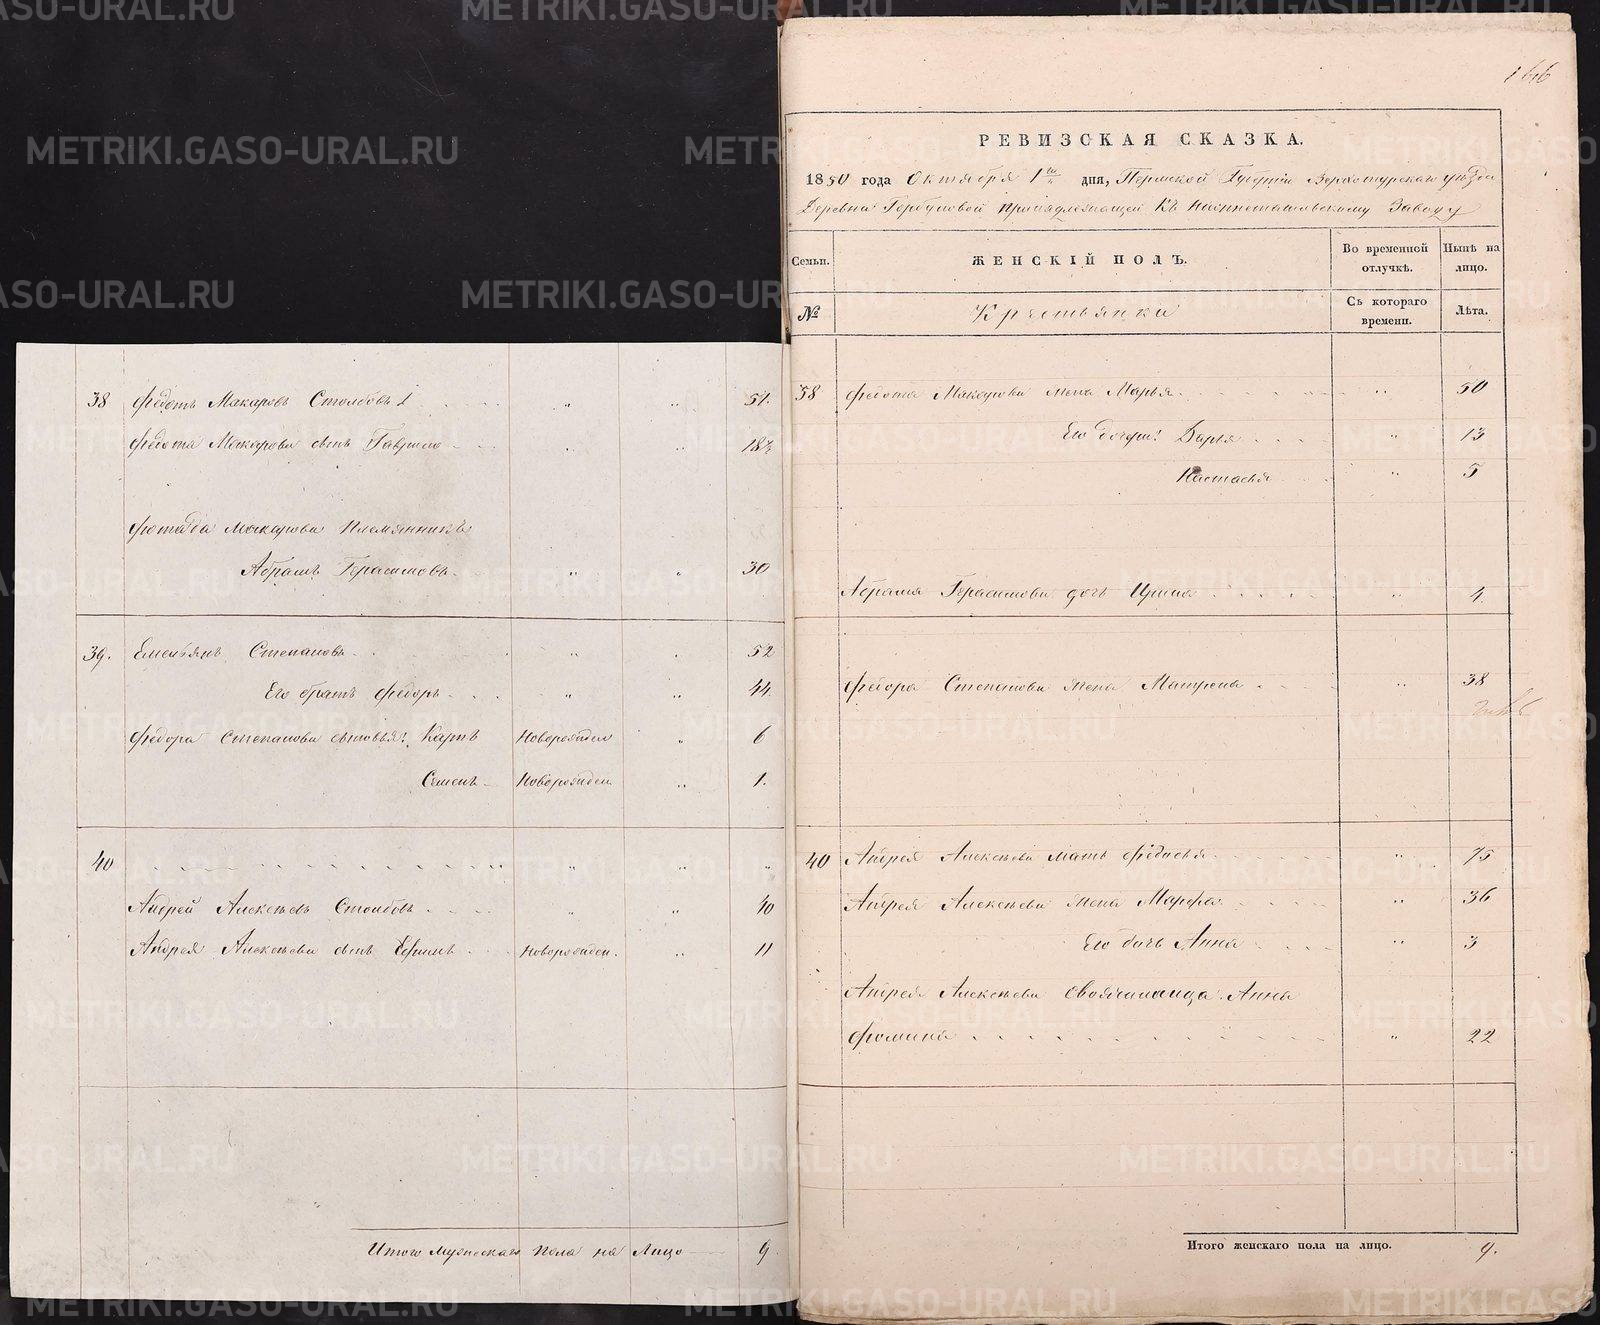 38 Федотъ Макаровъ Столбовъ 1 " " 51.
Федота Макарова сынъ Гаврило " " 18½
Федота Макарова Племянникъ
Абрамъ Герасимовъ " " 30
39. Емельянъ Степановъ " " 52
Его братъ Федоръ " " 44
Федора Степанова сыновья: Карпъ Новорожден " 6
Семенъ Новорожден " 1.
40 " " "
Андрей Алексѣевъ Столбовъ " " 40
Андрея Алексѣева сынъ Ефимъ Новорожден. " 11
Итого Мужескаго Пола на Лицо 9.
166
РЕВИЗСКАЯ СКАЗКА.
1850 года Октября 1го дня, Пермской Губерніи Верхотурскаго уѣзда
Деревни Горбуновой принадлежащей Къ Нижнетагильскому Заводу
Семьи. ЖЕНСКІЙ ПОЛЪ. Во временной отлучкѣ. Нынѣ на лицо.
№ Крестьянки Съ котораго времени. Лѣта.
38 Федота Макарова жена Марья " 50
Его дочери: Дарья " 13
Настасья " 5
Абрама Герасимова дочь Ирина " 4
Федора Степанова жена Матрена " 38
40 Андрея Алексѣева мать Федосья " 75
Андрея Алексѣева жена Марфа " 36
Его дочь Анна " 3
Андрея Алексѣева свояченица Анна
Фомина " 22
Итого женскаго пола на лицо. 9.
METRIKI.GASO-URAL.RU